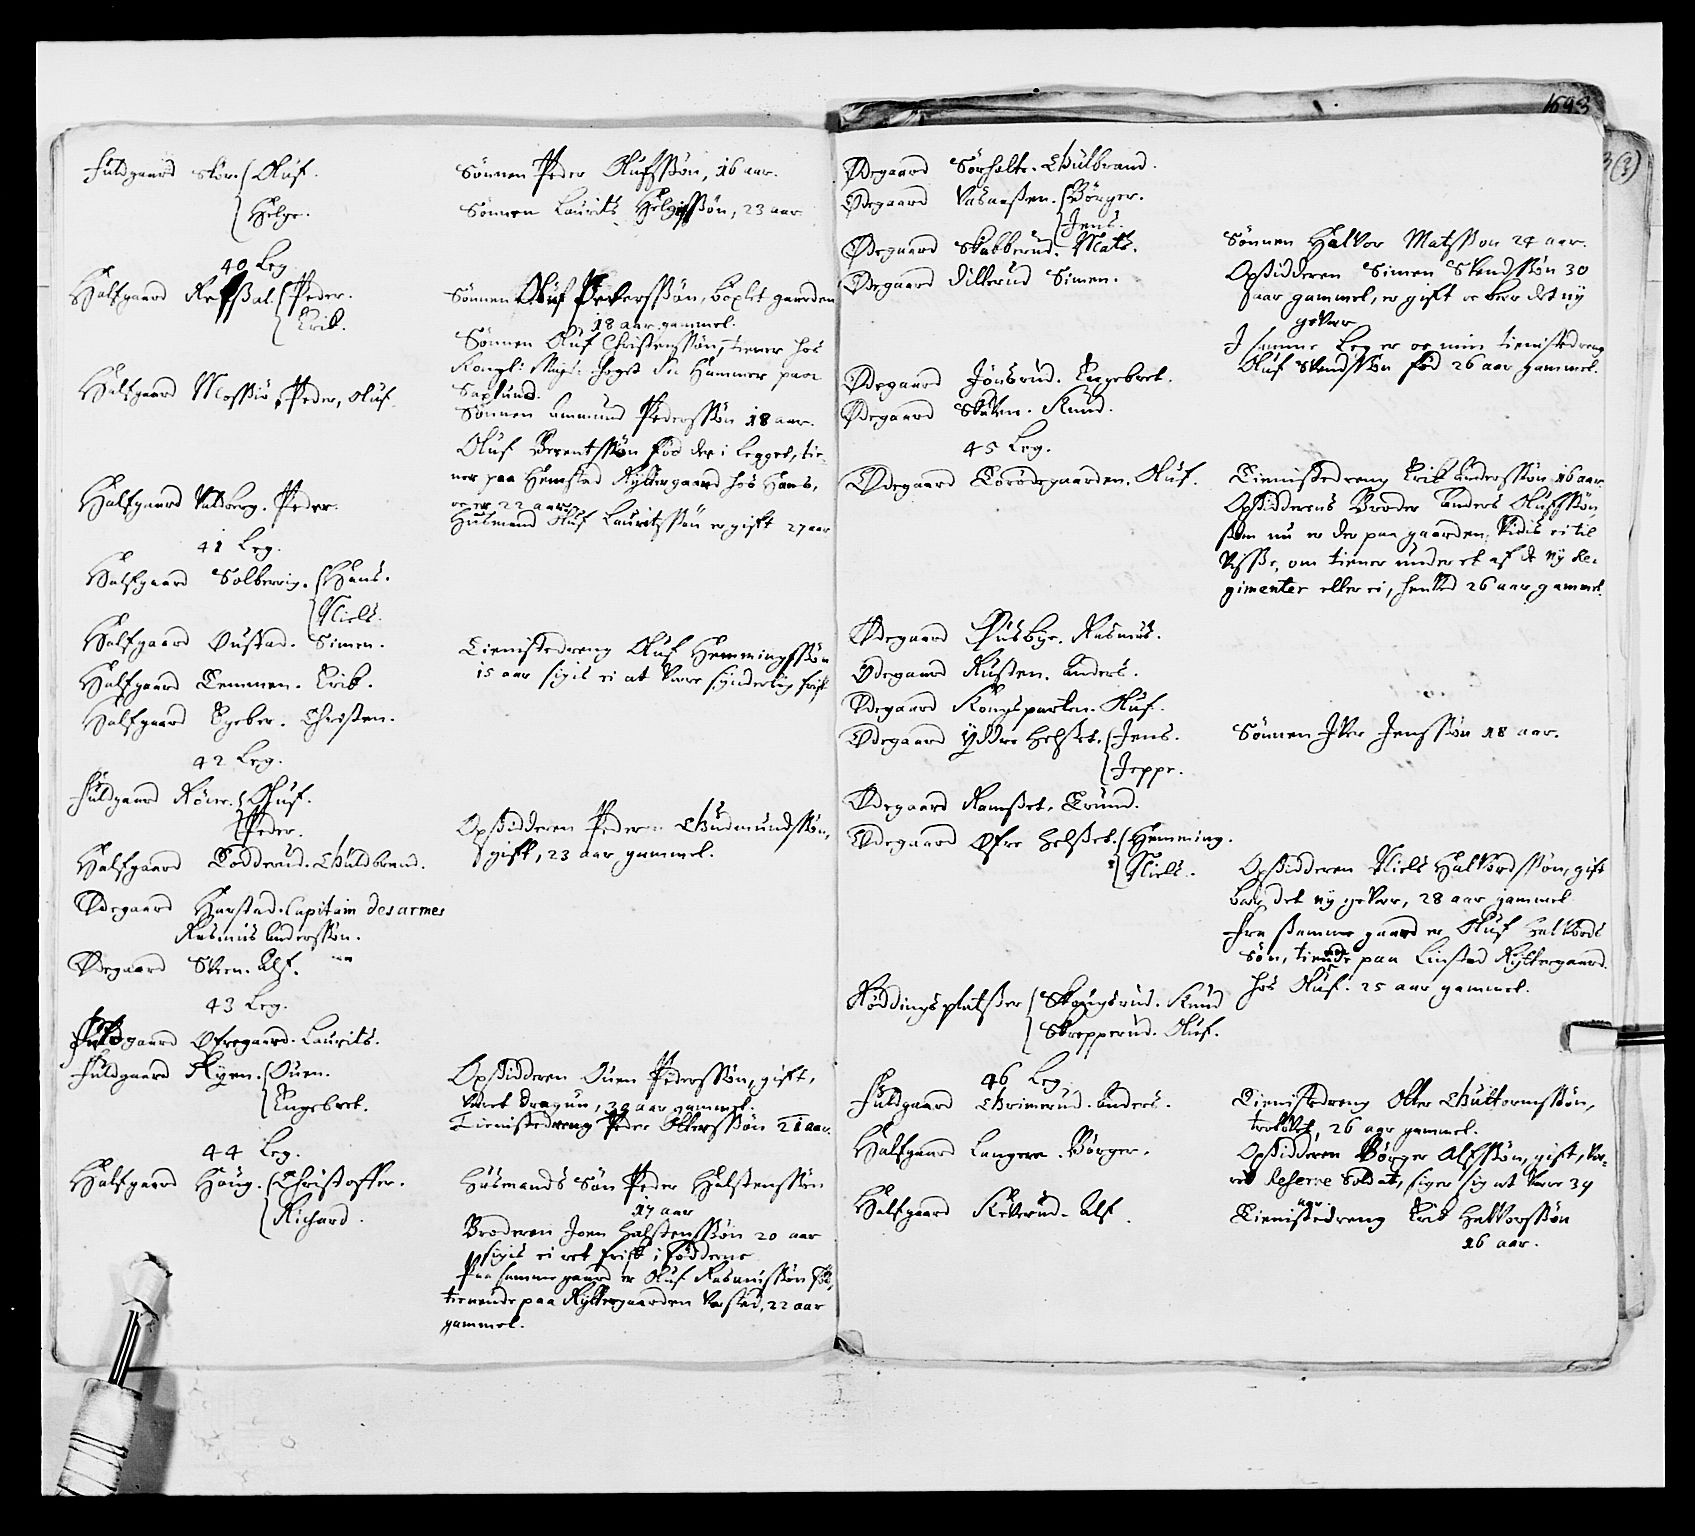 Fuldgaard Skör. Oluf.
Helge.
40 Leg
Halfgaard Refsal. Peder.
Erik.
Halfgaard Mossig, Peder, Oluf.
Halfgaard Valberg. Peder.
41 Leg.
Halfgaard Solberrig. Hans.
Niels.
Halfgaard Oustad. Simen.
Halfgaard Temmen. Erik.
Halfgaard Egeber. Christen.
42 Leg.
Fuldgaard Röne. Oluf.
Peder.
Halfgaard Todderud. Guldbrand.
Ødegaard Harstad. Capitain des armes
Rasmus Anderssön.
Ødegaard Sven. Alf.
43 Leg.
Fuldgaard Øfregaard. Laurits.
Fuldgaard Ryen. Ouen.
Engebret.
44 Leg.
Halfgaard Houg. Christoffer.
Richard.
Sönnen Peder Olufssön, 16 aar.
Sönnen Laurits Helgessön, 23 aar
Sönnen Oluf Pederssön, böxlet gaarden
18 aar gammel.
Sönnen Oluf Christenssön, tiener hos
Kongl: Mayts: foget Sr Hammer paa
Saxlund.
Sönnen Ammund Pederssön 18 aar.
Oluf Berentssön föd der i Legget, tie-
ner paa Hemstad Rÿttergaard hos Hans,
er 22 aar.
Husmand Oluf Lauritzssön er gift 27 aar
Tienistedreng Oluf Hemmingssön
15 aar sigis ei at vere synderlig frisk
Opsidderen Peder Gudmundssön,
gift, 23 aar gammel.
Opsidderen Ouen Pederssön, gift,
veret dragun, 30 aar gammel.
Tienistedreng Peder Olterssön 21 aar.
Husmands Sön Peder Halstenssön
17 aar
Broderen Joen Halstenssön 20 aar
sigis ei ret frisk i födderne
Paa samme gaard er Oluf Rasmussön föd,
tienende paa Rÿttergaarden Vestad, 22 aar
gammel.
1693
3 (3)
Ødegaard Sörholte. Gulbrand.
Ødegaard Aasaassen. Börger.
Jens.
Ødegaard Skabberud. Mats.
Ødegaard Dilterud Simen.
Ødegaard Jonsrud. Engebret.
Ødegaard Skaven. Knud.
45 Leg.
Ødegaard Toroidegaarden. Oluf.
Ødegaard Husbye. Rasmus.
Ødegaard Rusten. Anders.
Ødegaard Kongsparten. Oluf.
Ødegaard Yddre Helset. Jens.
Jeppe.
Ødegaard Ramset. Trund.
Ødegaard Øfre Helset. Hemming.
Niels.
Röddingsplatser Skougsrud. Knud
Skrepperud. Oluf.
46 Leg.
Fuldgaard Grimerud. Anders.
Halfgaard Langere. Börger.
Halfgaard Kieverud. Alf.
Sönnen Halvor Matssön 24 aar.
Opsidderen Simen Svendssön 30
aar gammel, er gift oc bær det ny
gevær
I samme Leg er oc min tienistedreng
Oluf Svendssön föd 26 aar gammel.
Tienistedreng Erik Anderssön 16 aar.
Opsidderens Broder Anders Olufssön
som nu er der paa gaarden, vidis ei til
visse, om tiener under et af de ny Re-
gimenter eller ei, henved 26 aar gammel.
Sönnen Iver Jenssön 18 aar.
Opsidderen Niels Halvordssön, gift
bær det ny gevær, 28 aar gammel
Fra samme gaard er Oluf Halvords
sön, tienende paa Linstad Rÿttergaard.
hos Oluf. 25 aar gammel.
Tienistedreng Olter Guttormssön,
26 aar gammel.
Opsidderen Börger Alfssön, gift, ve-
ret Reserve Soldat, siger sig at være 34
aar.
Tienistedreng Erik Halvorssön
16 aar.